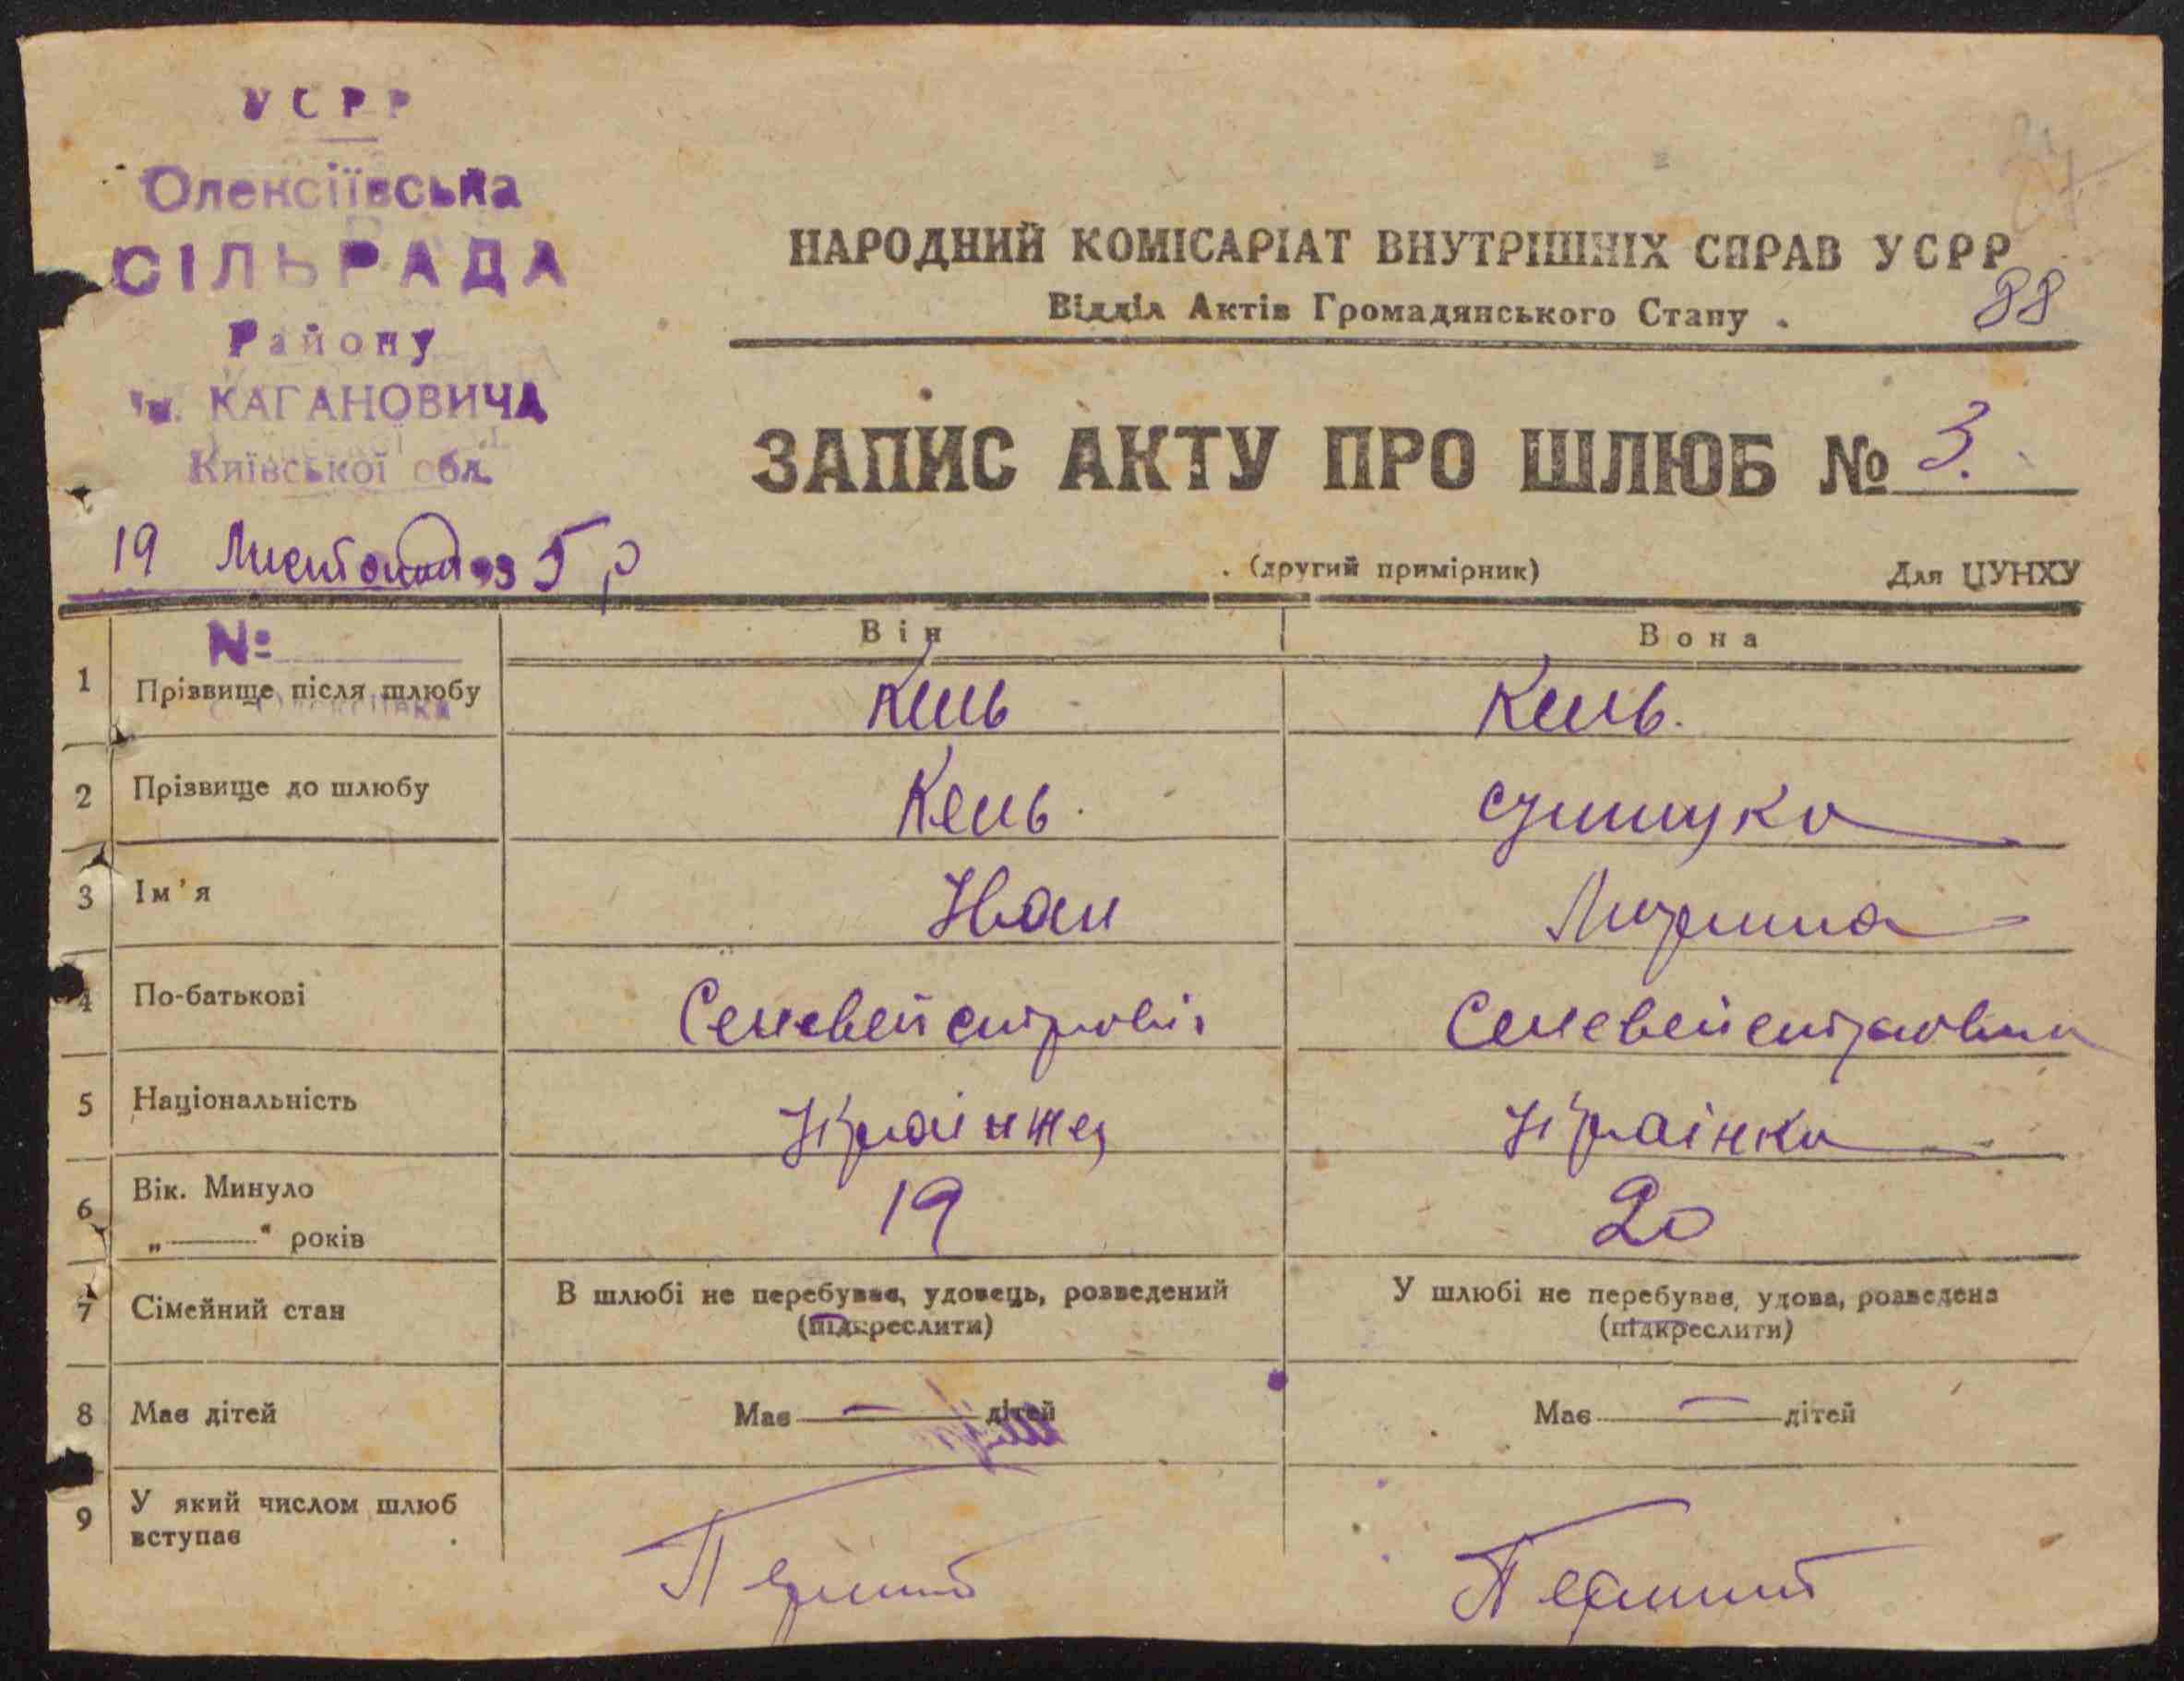 УСРР
Олексіївська
СІЛЬРАДА
Району
ім. КАГАНОВИЧА
Київської обл.
19 Листопад 1935 р
НАРОДНИЙ КОМІСАРІАТ ВНУТРІШНІХ СПРАВ УСРР
Відділ Актів Громадянського Стану
88
ЗАПИС АКТУ ПРО ШЛЮБ № 3.
(другий примірник) Для ЦУНХУ
№
Він Вона
1 Прізвище після шлюбу Кень Кень.
2 Прізвище до шлюбу Кень
3 Ім'я Иван
4 По-батькові
5 Національність Українка
6 Вік. Минуло 19 20
„ “ років
7 Сімейний стан В шлюбі не перебуває, удовець, розведений У шлюбі не перебуває, удова, розведена
(підкреслити) (підкреслити)
8 Має дітей Має — дітей Має — дітей
9 У який числом шлюб
вступає
Перший Перший